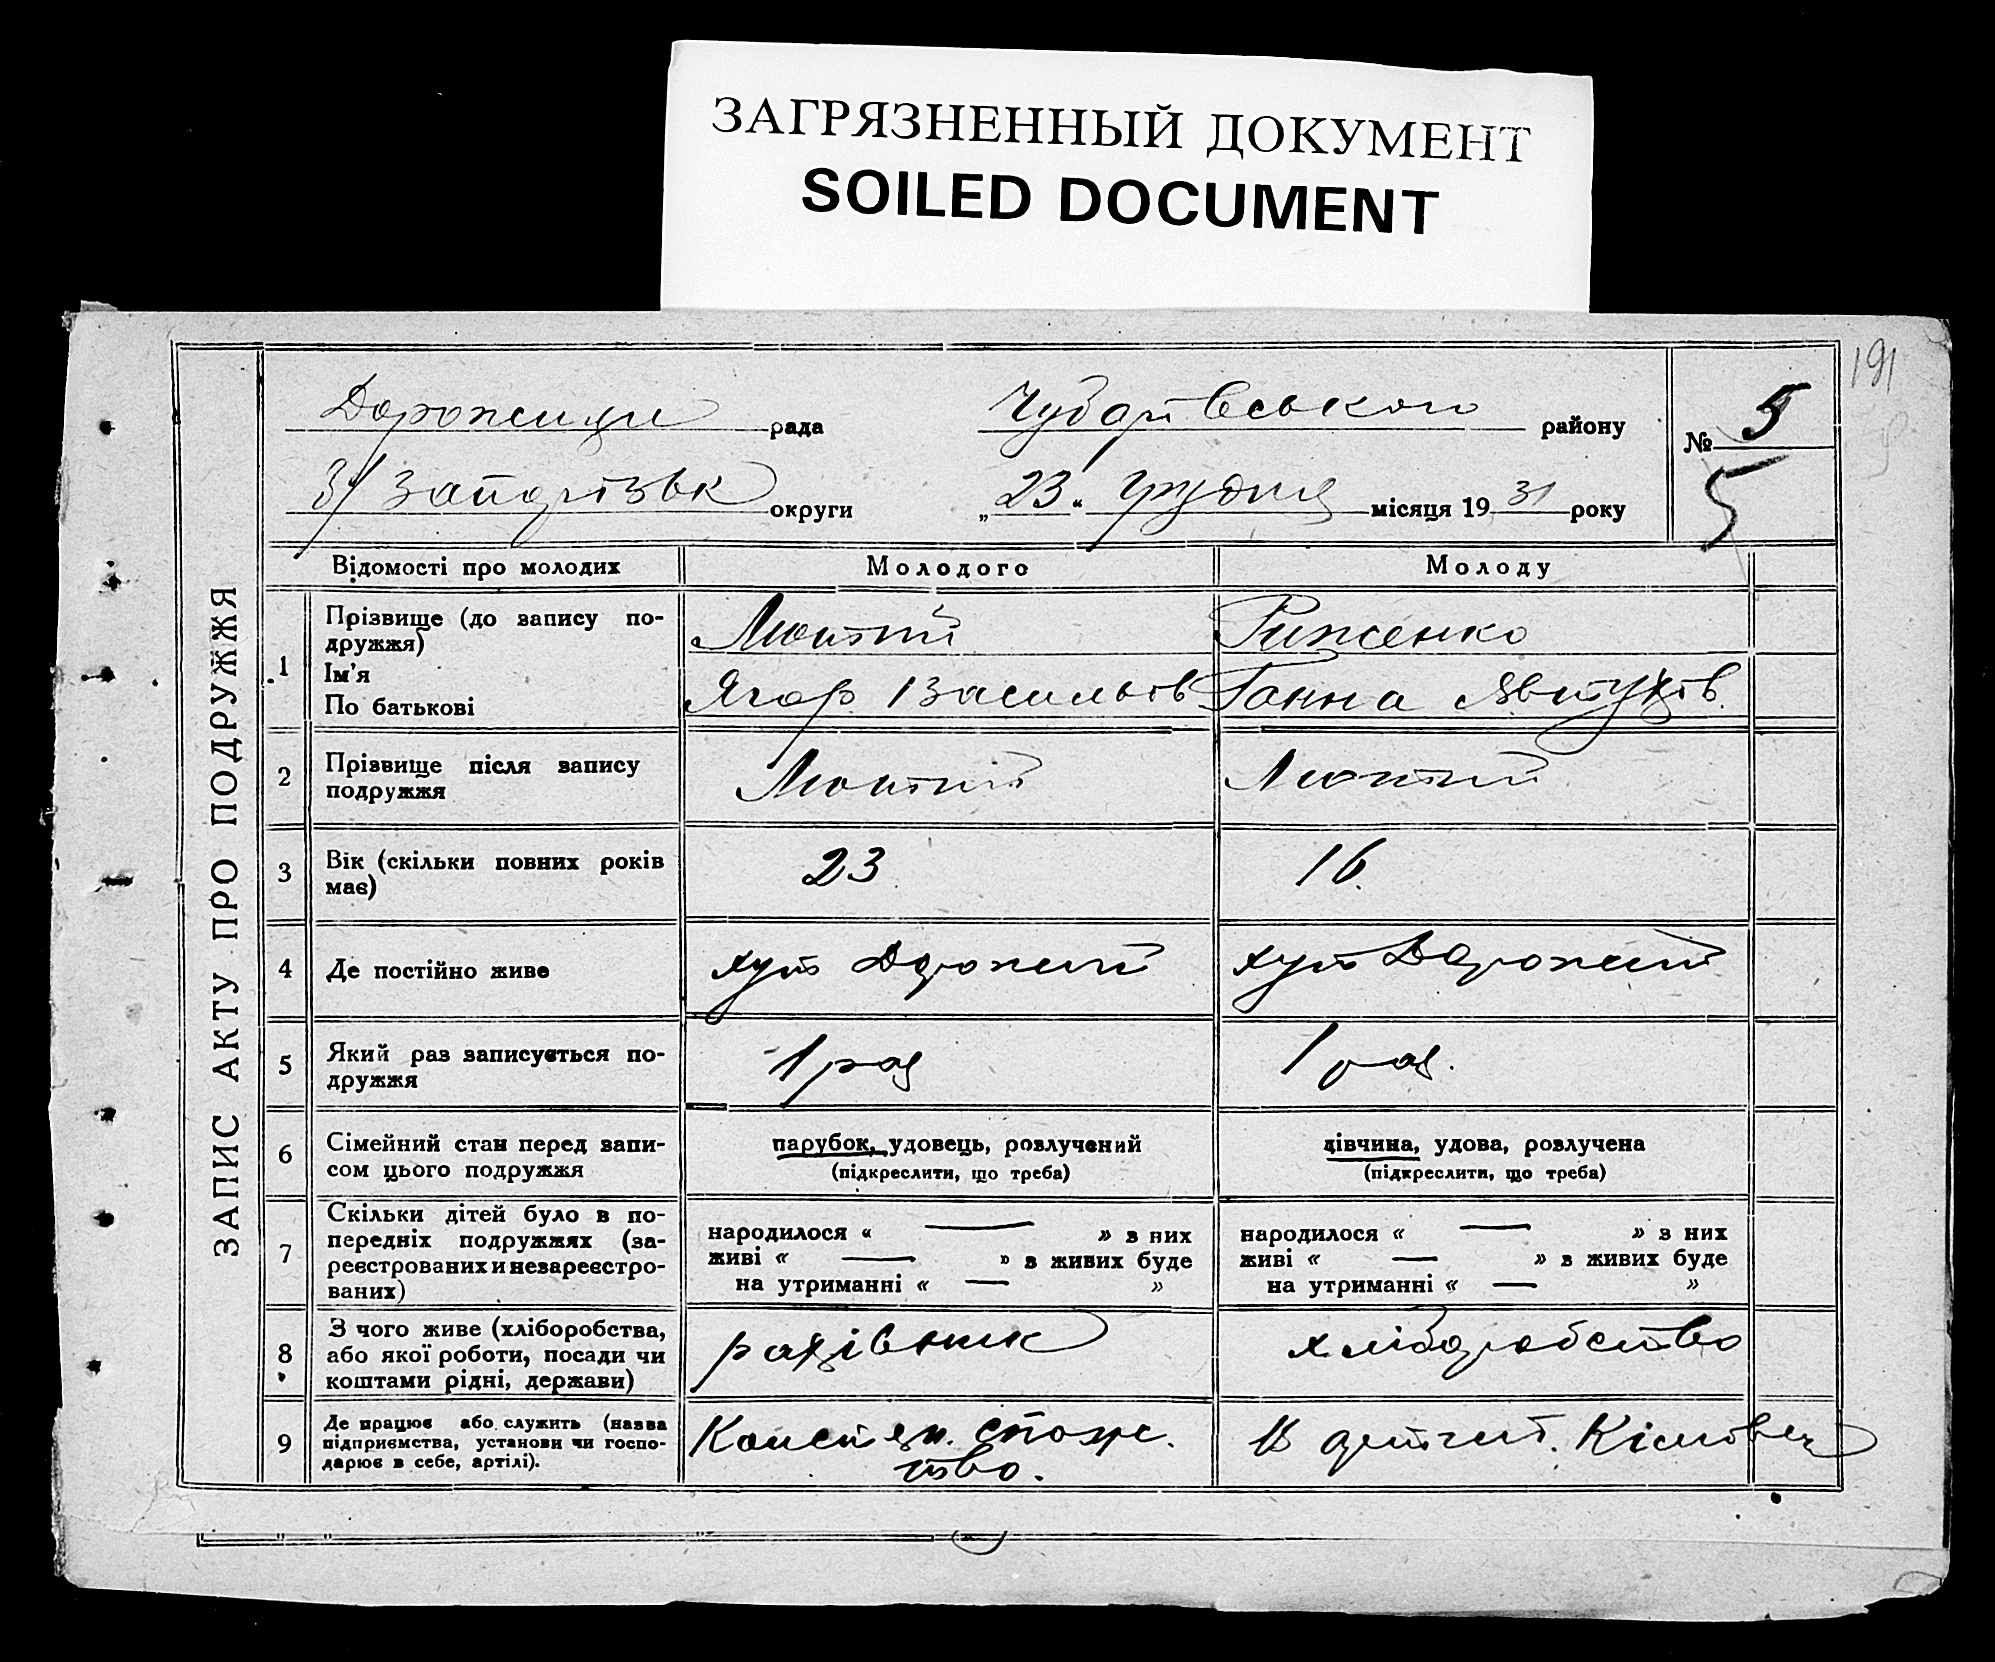 ЗАГРЯЗНЕННЫЙ ДОКУМЕНТ
SOILED DOCUMENT
191
рада Чубарівського району № 5
округи „23“ грудня місяця 1931 року 5
ЗАПИС АКТУ ПРО ПОДРУЖЖЯ
Відомості про молодих Молодого Молоду
1 Прізвище (до запису по-
дружжя) Лютий Риженко
Ім'я
По батькові Ягор Васильов Ганна Явтухів
2 Прізвище після запису
подружжя Лютий Лютий
3 Вік (скільки повних років
має) 23 16
4 Де постійно живе хут хут
5 Який раз записується по-
дружжя 1 раз 1 раз.
6 Сімейний стан перед запи-
сом цього подружжя
парубок, удовець, розлучений дівчина, удова, розлучена
(підкреслити, що треба) (підкреслити, що треба)
7 Скільки дітей було в по-
передніх подружжях (за-
реєстрованих и незареєстро-
ваних)
народилося « — » з них народилося « — » з них
живі « — » в живих буде живі « — » в живих буде
на утриманні « — » на утриманні « — »
8 З чого живе (хліборобства,
або якої роботи, посади чи
коштами рідні, держави) хліборобство
9 Де працює або служить (назва
підприємства, установи чи госпо-
дарює в себе, артілі).